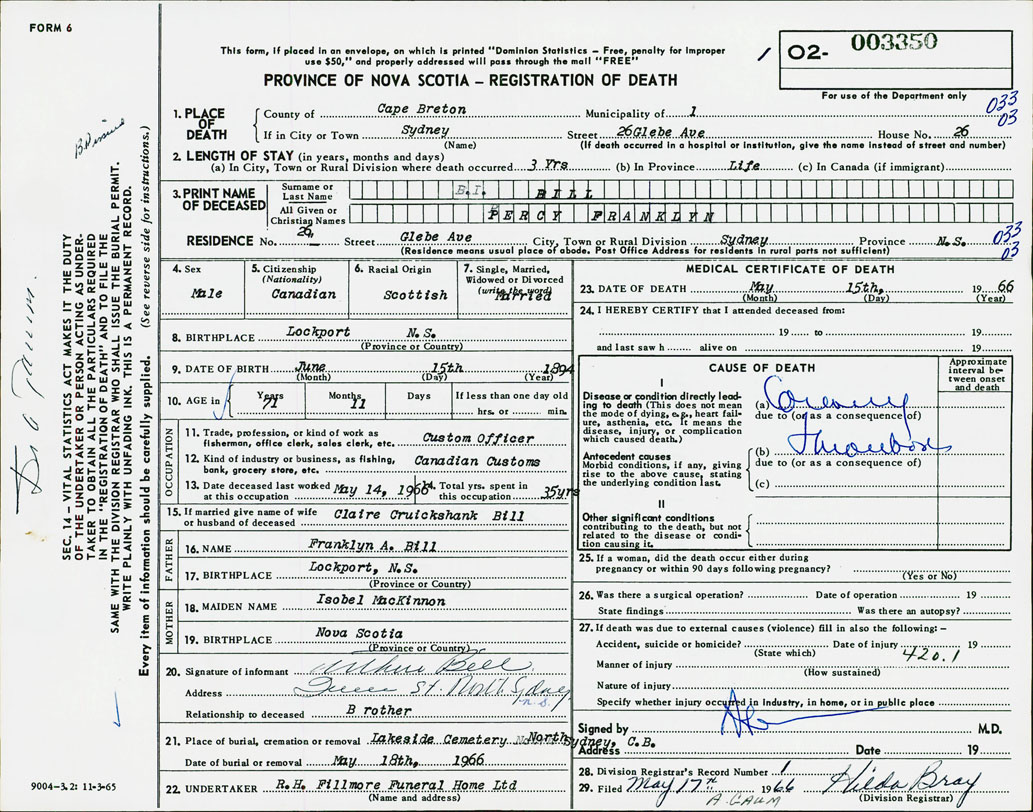 FORM 6
This form, if placed in an envelope, on which is printed "Dominion Statistics – Free, penalty for improper
use $50," and properly addressed will pass through the mail "FREE"
PROVINCE OF NOVA SCOTIA – REGISTRATION OF DEATH
02- 003350
For use of the Department only
033
03
1. PLACE OF DEATH
County of Cape Breton Municipality of 1
If in City or Town Sydney Street 26 Glebe Ave House No. 26
(Name) (If death occurred in a hospital or institution, give the name instead of street and number)
2. LENGTH OF STAY (in years, months and days)
(a) In City, Town or Rural Division where death occurred 3 Yrs (b) In Province Life (c) In Canada (if immigrant)
3. PRINT NAME OF DECEASED
Surname or Last Name B.I. BILL
All Given or Christian Names PERCY FRANKLYN
RESIDENCE No. 26, Street Glebe Ave City, Town or Rural Division Sydney Province N.S.
033
03
(Residence means usual place of abode. Post Office Address for residents in rural parts not sufficient)
4. Sex
Male
5. Citizenship
(Nationality)
Canadian
6. Racial Origin
Scottish
7. Single, Married,
Widowed or Divorced
(write the word)
Married
8. BIRTHPLACE Lockport N.S.
(Province or Country)
9. DATE OF BIRTH June 15th 1894
(Month) (Day) (Year)
10. AGE in Years 71 Months 11 Days If less than one day old
hrs. or min.
OCCUPATION
11. Trade, profession, or kind of work as
fisherman, office clerk, sales clerk, etc. Custom Officer
12. Kind of industry or business, as fishing,
bank, grocery store, etc. Canadian Customs
13. Date deceased last worked
at this occupation May 14, 1966
14. Total yrs. spent in
this occupation 35yrs
15. If married give name of wife
or husband of deceased Claire Cruickshank Bill
FATHER
16. NAME Franklyn A. Bill
17. BIRTHPLACE Lockport, N.S.
(Province or Country)
MOTHER
18. MAIDEN NAME Isobel MacKinnon
19. BIRTHPLACE Nova Scotia
(Province or Country)
20. Signature of informant Arthur Bell
Address Queen St. North Sydney
n.s.
Relationship to deceased B rother
21. Place of burial, cremation or removal Lakeside Cemetery North Sydney, C.B.
Date of burial or removal May 18th, 1966
22. UNDERTAKER R.H. Fillmore Funeral Home Ltd
(Name and address)
MEDICAL CERTIFICATE OF DEATH
23. DATE OF DEATH May 15th, 19 66
(Month) (Day) (Year)
24. I HEREBY CERTIFY that I attended deceased from:
19 to 19
and last saw h alive on 19
CAUSE OF DEATH
Approximate
interval be-
tween onset
and death
I
Disease or condition directly lead-
ing to death (This does not mean
the mode of dying, e.g., heart fail-
ure, asthenia, etc. It means the
disease, injury, or complication
which caused death.)
(a) Coronary
due to (or as a consequence of)
Thrombosis
Antecedent causes
Morbid conditions, if any, giving
rise to the above cause, stating
the underlying condition last.
(b)
due to (or as a consequence of)
(c)
II
Other significant conditions
contributing to the death, but not
related to the disease or condi-
tion causing it.
25. If a woman, did the death occur either during
pregnancy or within 90 days following pregnancy?
(Yes or No)
26. Was there a surgical operation? Date of operation 19
State findings Was there an autopsy?
27. If death was due to external causes (violence) fill in also the following: –
Accident, suicide or homicide? Date of injury 19
(State which) 420.1
Manner of injury
(How sustained)
Nature of injury
Specify whether injury occurred in Industry, in home, or in public place
Signed by M.D.
Address Date 19
28. Division Registrar's Record Number 1
29. Filed May 17th 1966 Hilda Bray
(Division Registrar)
SEC. 14 – VITAL STATISTICS ACT MAKES IT THE DUTY
OF THE UNDERTAKER OR PERSON ACTING AS UNDER-
TAKER TO OBTAIN ALL THE PARTICULARS REQUIRED
IN THE "REGISTRATION OF DEATH" AND TO FILE THE
SAME WITH THE DIVISION REGISTRAR WHO SHALL ISSUE THE BURIAL PERMIT.
WRITE PLAINLY WITH UNFADING INK. THIS IS A PERMANENT RECORD.
Every item of information should be carefully supplied. (See reverse side for instructions.)
9004-3.2: 11-3-65